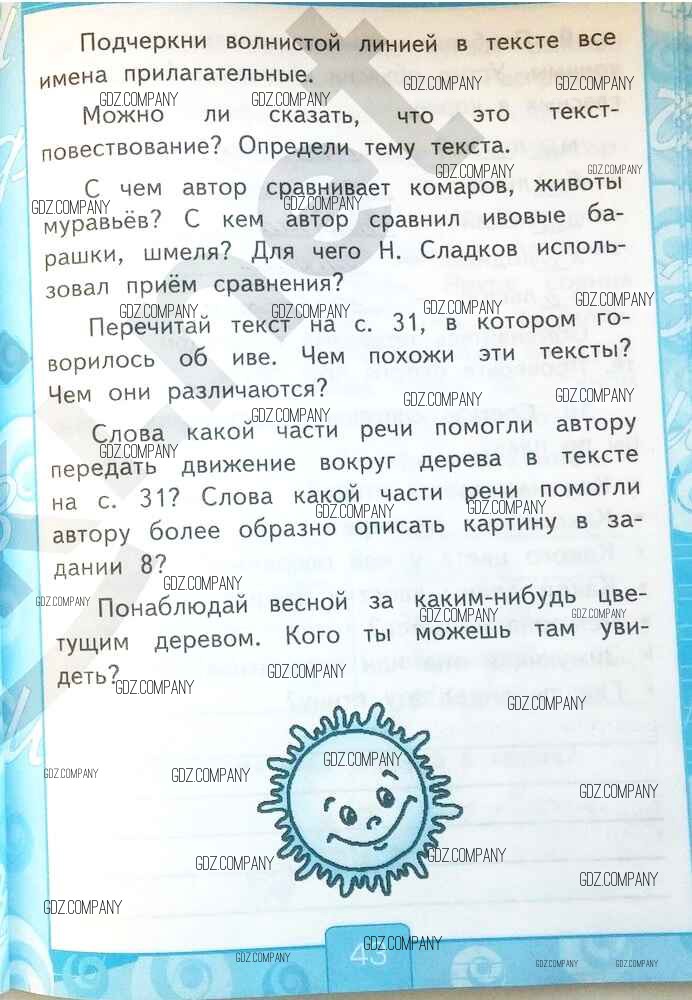 Подчеркни волнистой линией в тексте все
имена прилагательные.
Можно ли сказать, что это текст-
повествование? Определи тему текста.
С чем автор сравнивает комаров, животы
муравьёв? С кем автор сравнил ивовые ба-
рашки, шмеля? Для чего Н. Сладков исполь-
зовал приём сравнения?
Перечитай текст на с. 31, в котором го-
ворилось об иве. Чем похожи эти тексты?
Чем они различаются?
Слова какой части речи помогли автору
передать движение вокруг дерева в тексте
на с. 31? Слова какой части речи помогли
автору более образно описать картину в за-
дании 8?
Понаблюдай весной за каким-нибудь цве-
тущим деревом. Кого ты можешь там уви-
деть?
43
GDZ.COMPANY